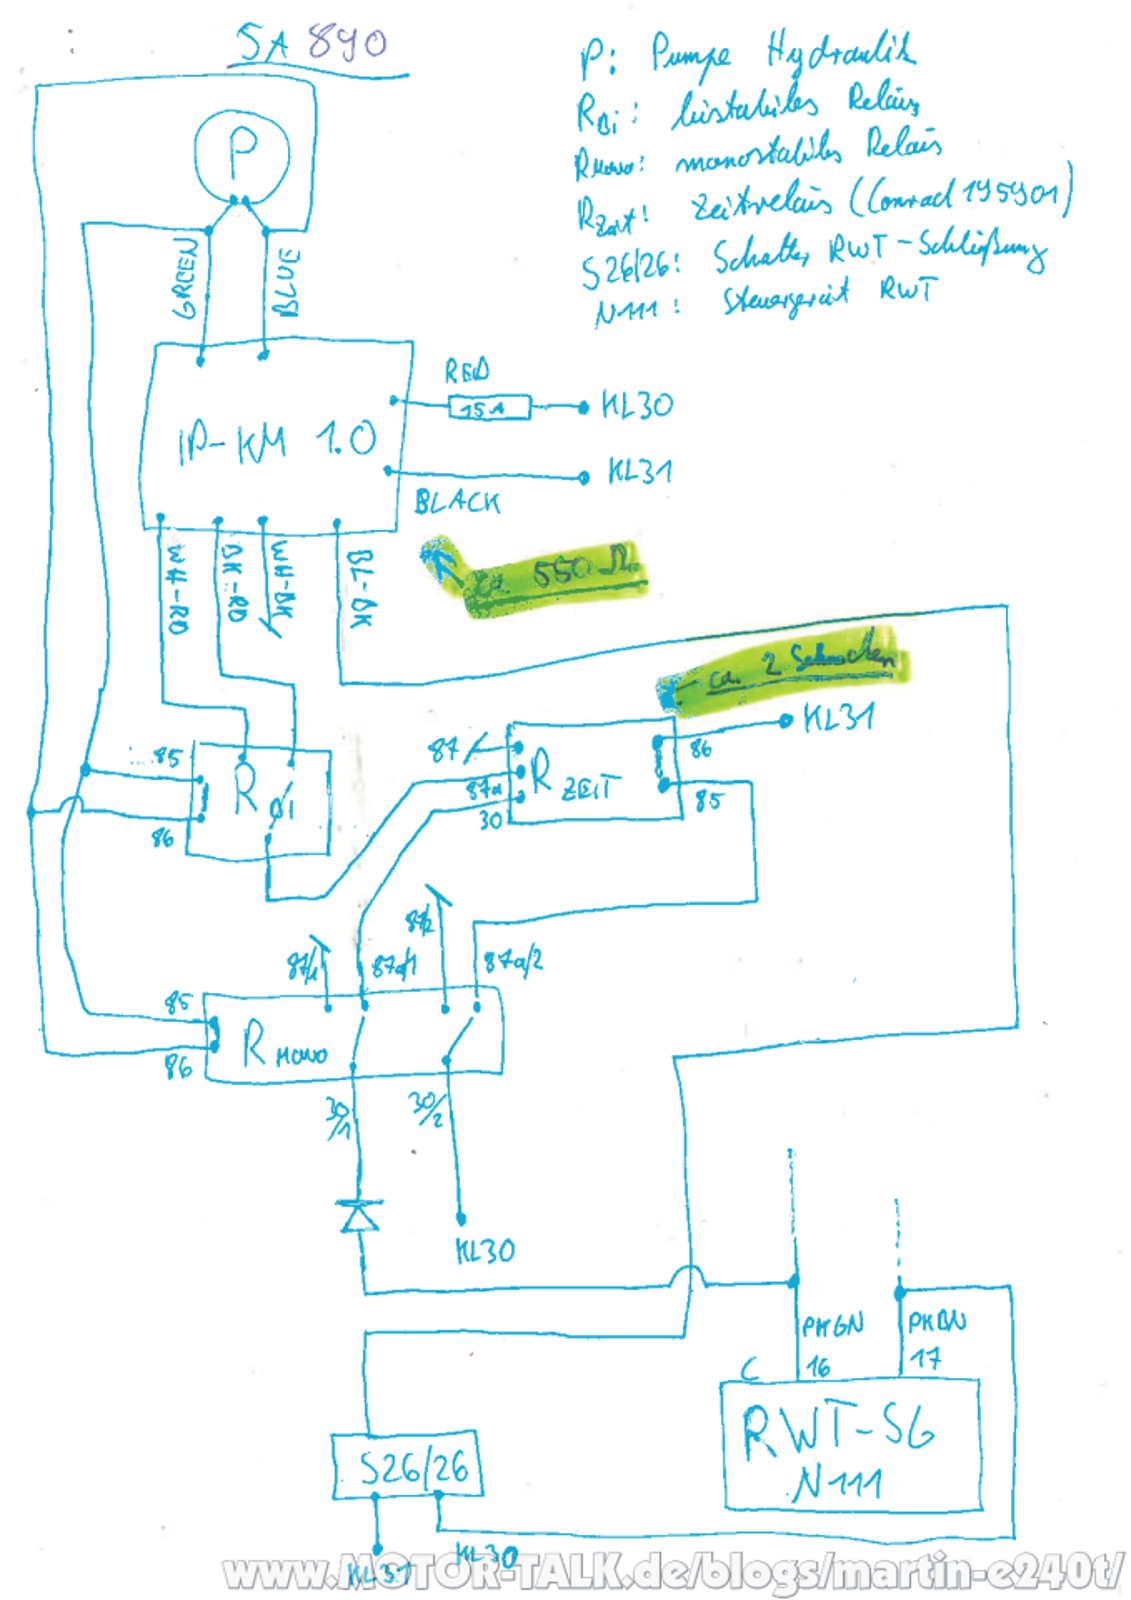 SA 890
P: Pumpe Hydraulik
RBi: bistabiles Relais
RMono: monostabiles Relais
RZeit: Zeitrelais (Conrad 195901)
S26/26: Schalter RWT-Schließung
N111: Steuergerät RWT
P
GREEN
BLUE
RED
15A
KL30
IP-KM 1.0
KL31
BLACK
WH-RD
BK-RD
WH-BK
BL-BK
ca. 550 Ω
ca. 2 Sekunden
KL31
87
86
85
R Bi
87a
R ZEIT
85
30
86
87/2
87/1
87a/1
87a/2
85
R MONO
86
30/1
30/2
KL30
PKGN
PKBN
C
16
17
RWT-SG
N111
S26/26
KL31
KL30
www.MOTOR-TALK.de/blogs/martin-e240t/